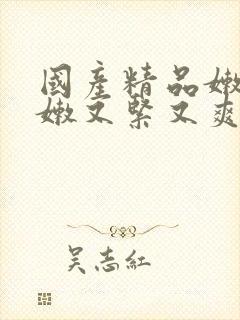 國產精品嫩
嫩又緊又爽
吴志紅